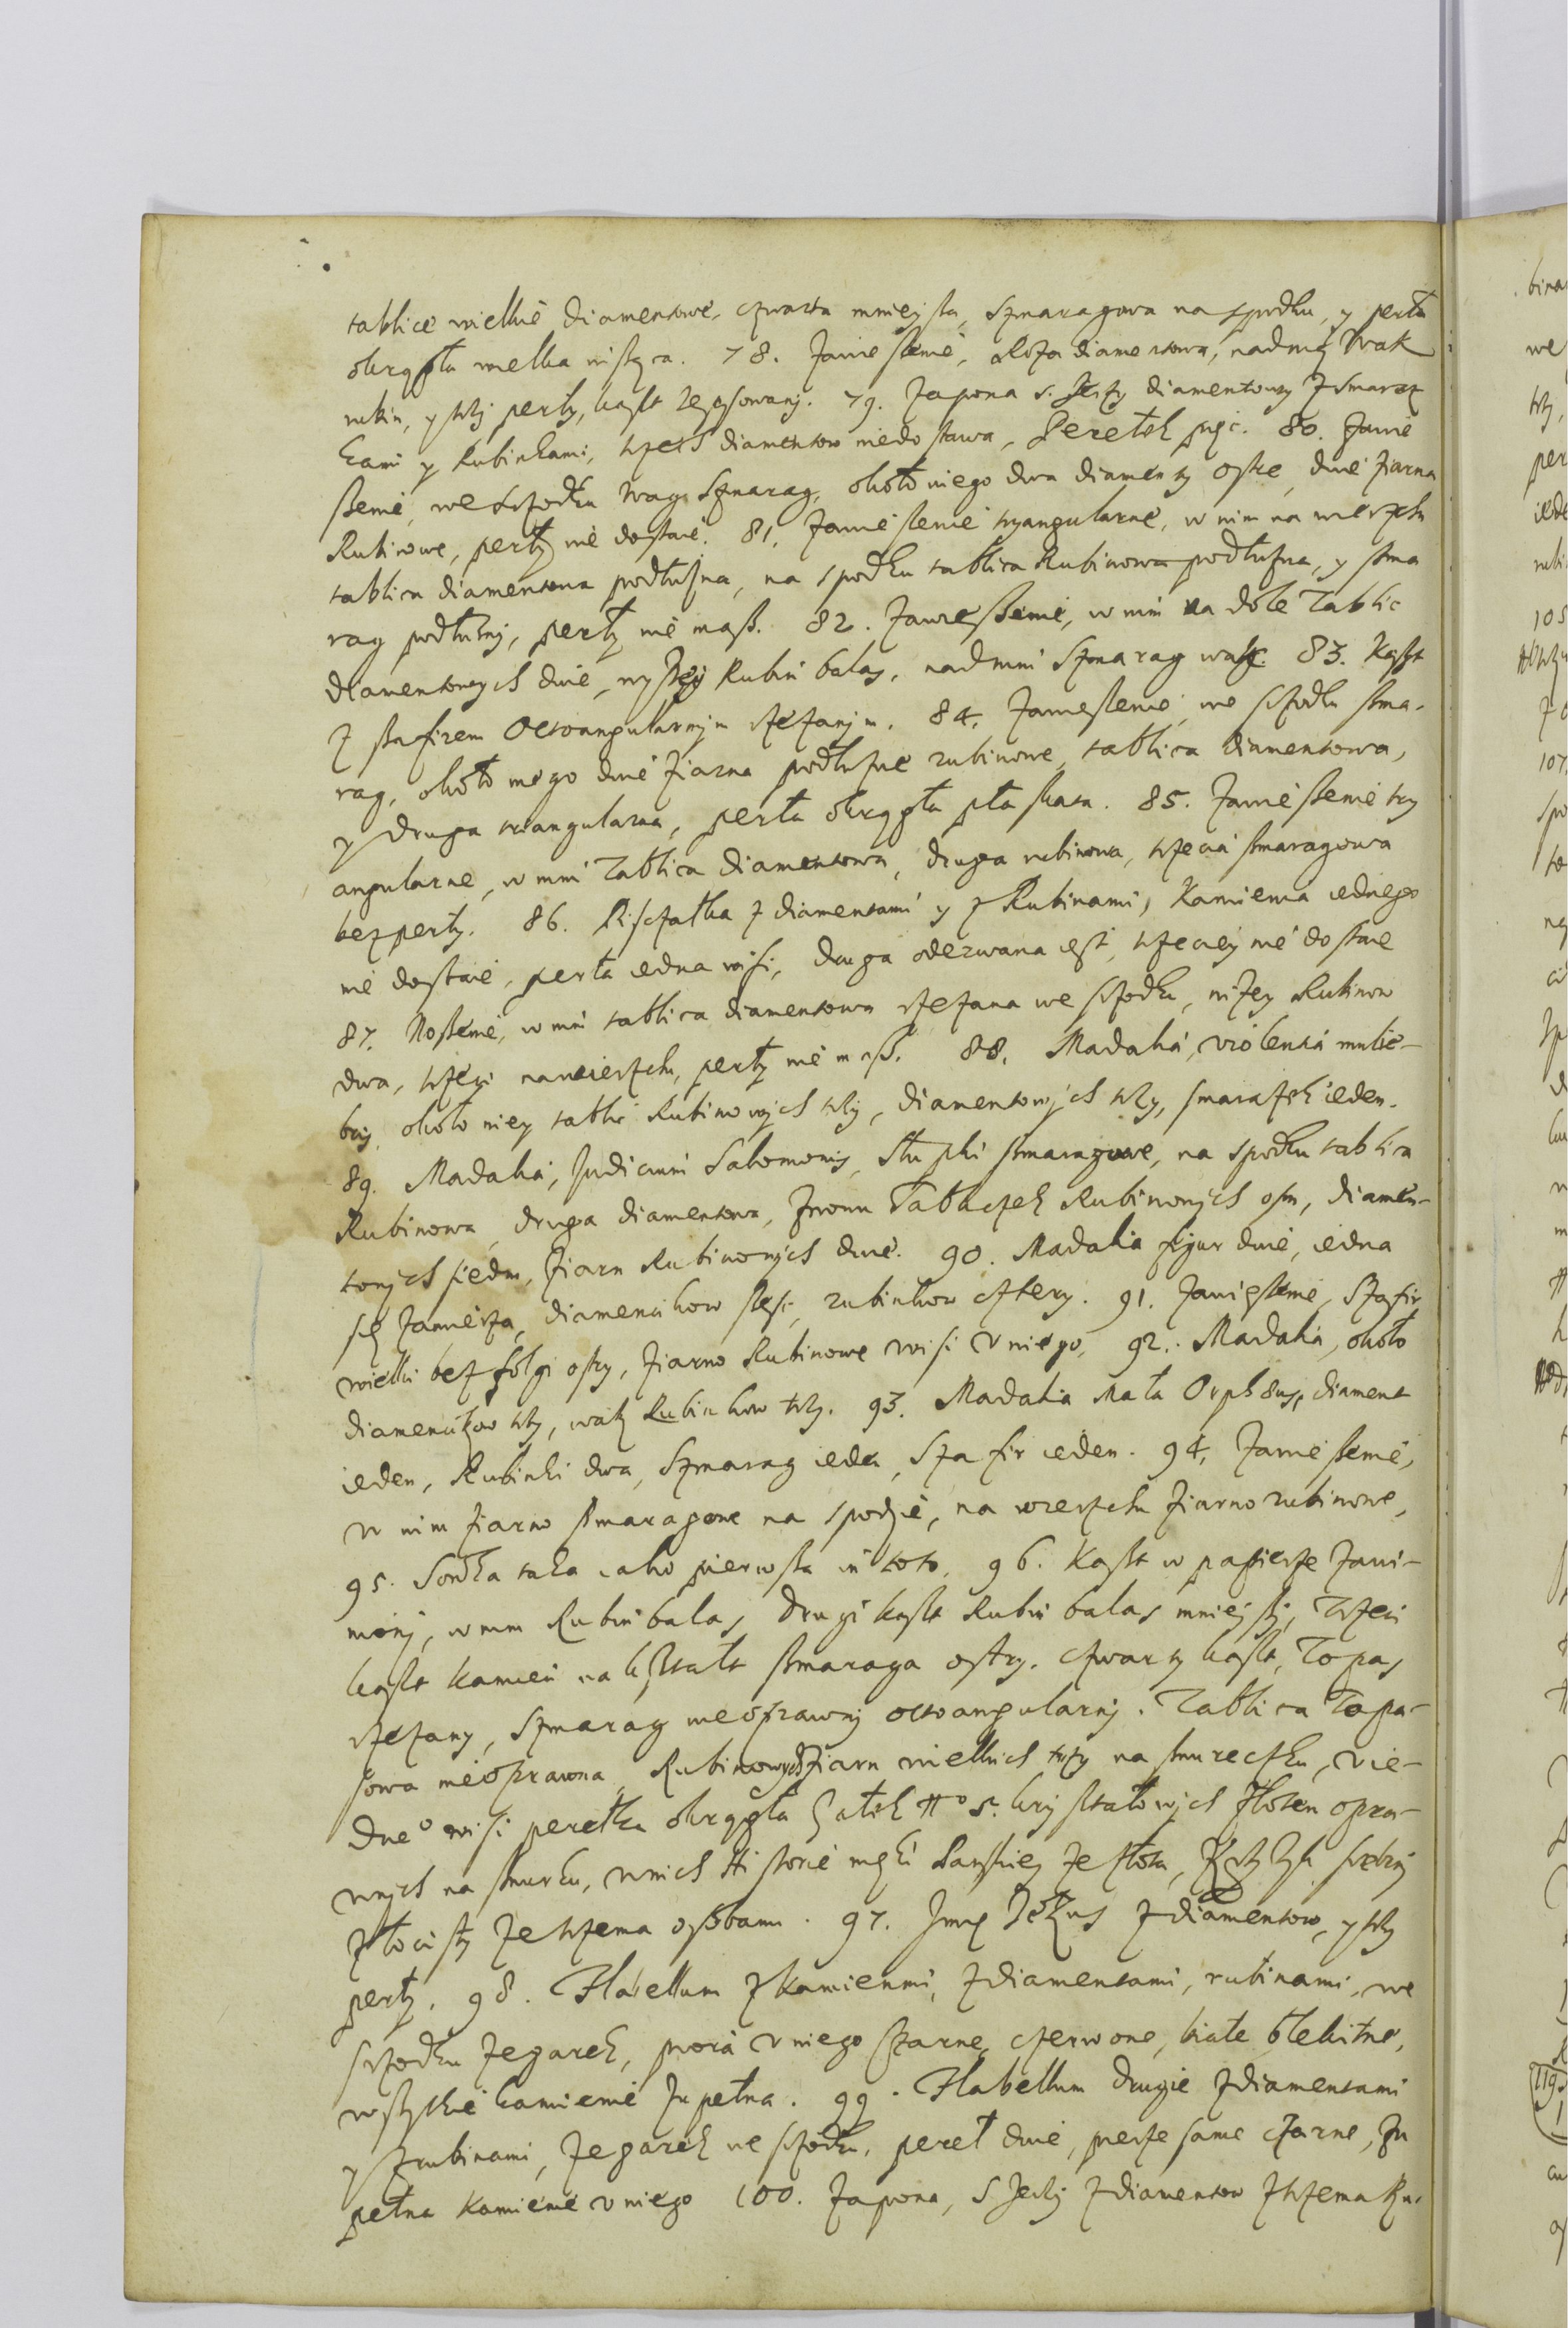 tablice wielkie diamentowe, czwarta mnieysza, szmaragowa na spodku, y perła
okrągła wielka wisząca. 78. Zawieszenie, Roza diamentowa, nad nią Ptak
rubin, y trzy perły, kaszt zepsowany. 79. Zapona s. Jerzy diamentowy z smaraz
kami y Rubinkami, trzech diamentow niedostawa, Perełek pięć. 80. Zawie
szenie, we srzodku Szmarag, około niego dwa diamenty ostre, dwie ziarna
Rubinowe, perły nie dostaie. 81. Zawieszenie tryangularne, w nim na wierzchu
tablica diamentowa podłużna, na spodku tablica Rubinowa podłużna, y szma
rag podłużny, perły nie masz. 82. Zawieszenie, w nim na dole Tablic
diamentowych dwie, wyszey Rubin balas, nad nim Szmarag 83. Kaszt
z szafirem Octoangularnym rzezanym. 84. Zawieszenie, we srzodku szma-
rag, około niego dwie ziarna podłużne rubinowe, tablica diamentowa,
y druga triangularna, perła okrągła płaskata. 85. Zawieszenie try
angularne, w nim Tablica diamentowa, druga rubinowa, trzecia szmaragowa
bez perły. 86. Piszczałka z diamentami y z Rubinami, Kamienia iednego
nie dostaie, perła iedna wisi, druga oderwana iest, trzeciey nie dostaie
87. Noszenie, w nim tablica diamentowa rzezana we srzodku, niżey Rubinow
dwa, trzeci na wierzchu, perły nie masz. 88. Madalia, violentia mulie-
bris, około niey tablic Rubinowych trzy, diamentowych trzy, smarazek ieden.
89. Madalia, Judicium Salomonis, Słupki szmaragowe, na spodku tablica
Rubinowa, druga diamentowa, znowu Tabliczek Rubinowych osm, diamen-
towych siedm, Ziarn Rubinowych dwie. 90. Madalia figur dwie, iedna
się zamierza, diamencikow sześć, rubinkow cztery. 91. Zawieszenie, Szafir
wielki bez folgi ostry, ziarno Rubinowe wisi v niego. 92. Madalia, około
diamencikow trzy, Rubinkow trzy. 93. Madalia Mała Orpheus, diament
ieden, Rubinki dwa, Szmarag ieden, Szafir ieden. 94. Zawieszenie,
w nim ziarno szmaragowe na spodzie, na wierzchu ziarno rubinowe,
95. Sowka taka iako pierwsza in toto. 96. Kaszt w papierze zawi-
niony, w nim Rubin balas, drugi kaszt Rubin balas mnieyszy, Trzeci
kaszt kamień na kształt szmaraga ostry, czwarty kaszt, Topas
rzezany, Szmarag nieoprawny octoangularny. Tablica Topa-
sowa nieoprawna, Rubinowych ziarn wielkich trzy na sznureczku, v ie-
dneo wisi perełka okrągła Gałek No 5. krysztalowych złotem opra-
wnych na sznurku, w nich Historie męki Pańskiey ze złota, Krzyżyk srebrny
złocisty ze trzema osobami. 97. Imię Jezus z diamentow, y trzy
perły. 98. Flabellum z kamienmi, z diamentami, rubinami, we
srzodku zegarek, piora v niego czarne, czerwone, białe błekitne,
wszytkie kamienie zupełna. 99. Flabellum drugie z diamentami
y z rubinami, zegarek we srzodku, pereł dwie, pierze same czarne, zu
pełna kamienie v niego 100. Zapona, S Jerzy z diamentow z trzema Ru-